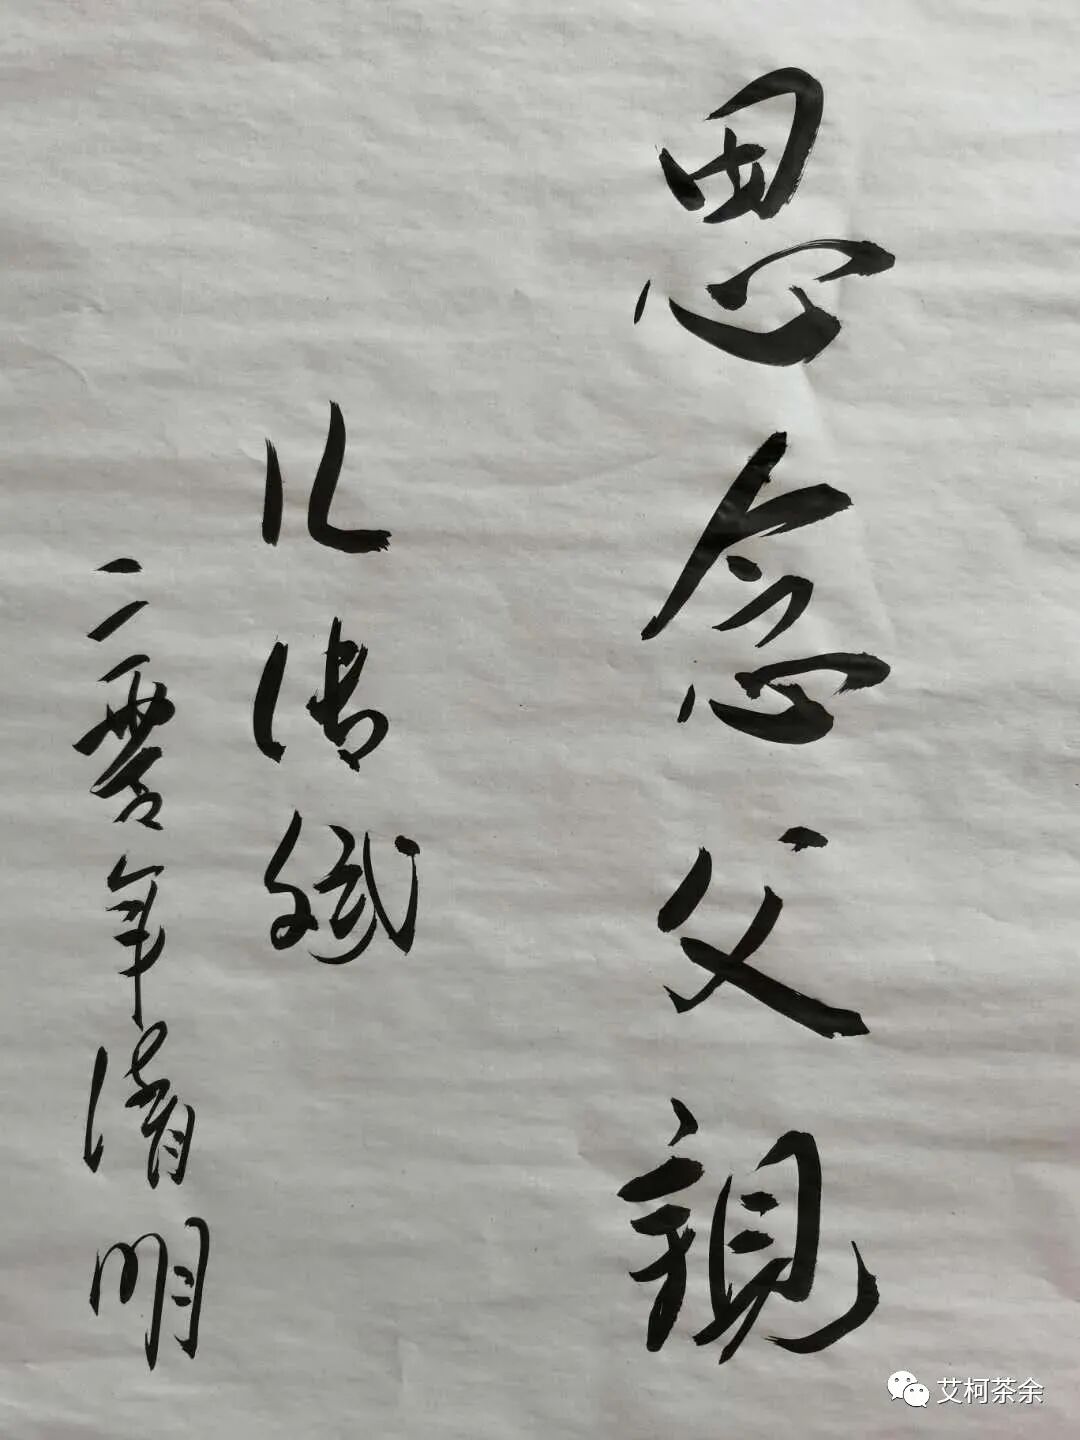 思念父親
儿斌
二零年清明
艾柯茶余